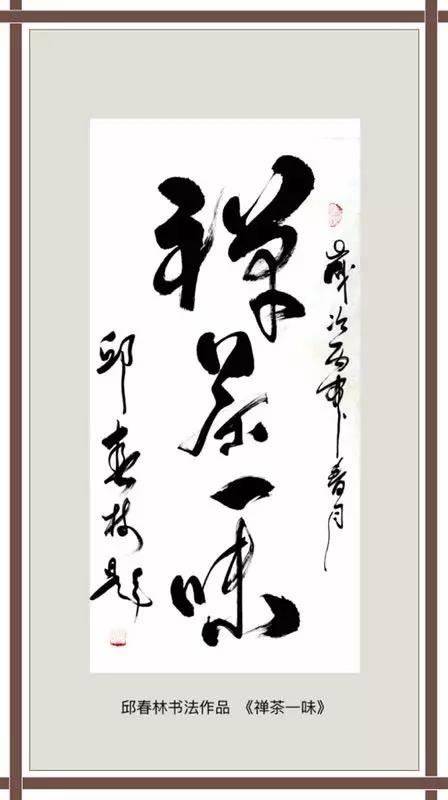 歲次丙申春月
禪茶一味
邱春林題
邱春林书法作品 《禅茶一味》